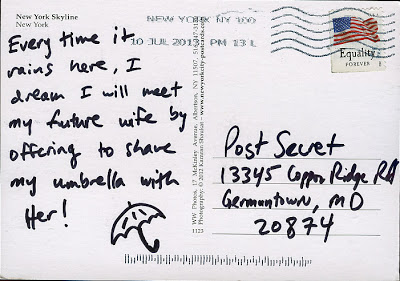 New York Skyline
New York
Every time it
rains here, I
dream I will meet
my future wife by
offering to share
my umbrella with
Her!
NEW YORK NY 100
10 JUL 2013 PM 13 L
Equality
FOREVER
Post Secret
13345 Copper Ridge Rd
Germantown, MD
20874
WW Photos, 17 McKinley Avenue, Albertson, NY 11507
Photography: © 2012 Kamran Shoukat
1123